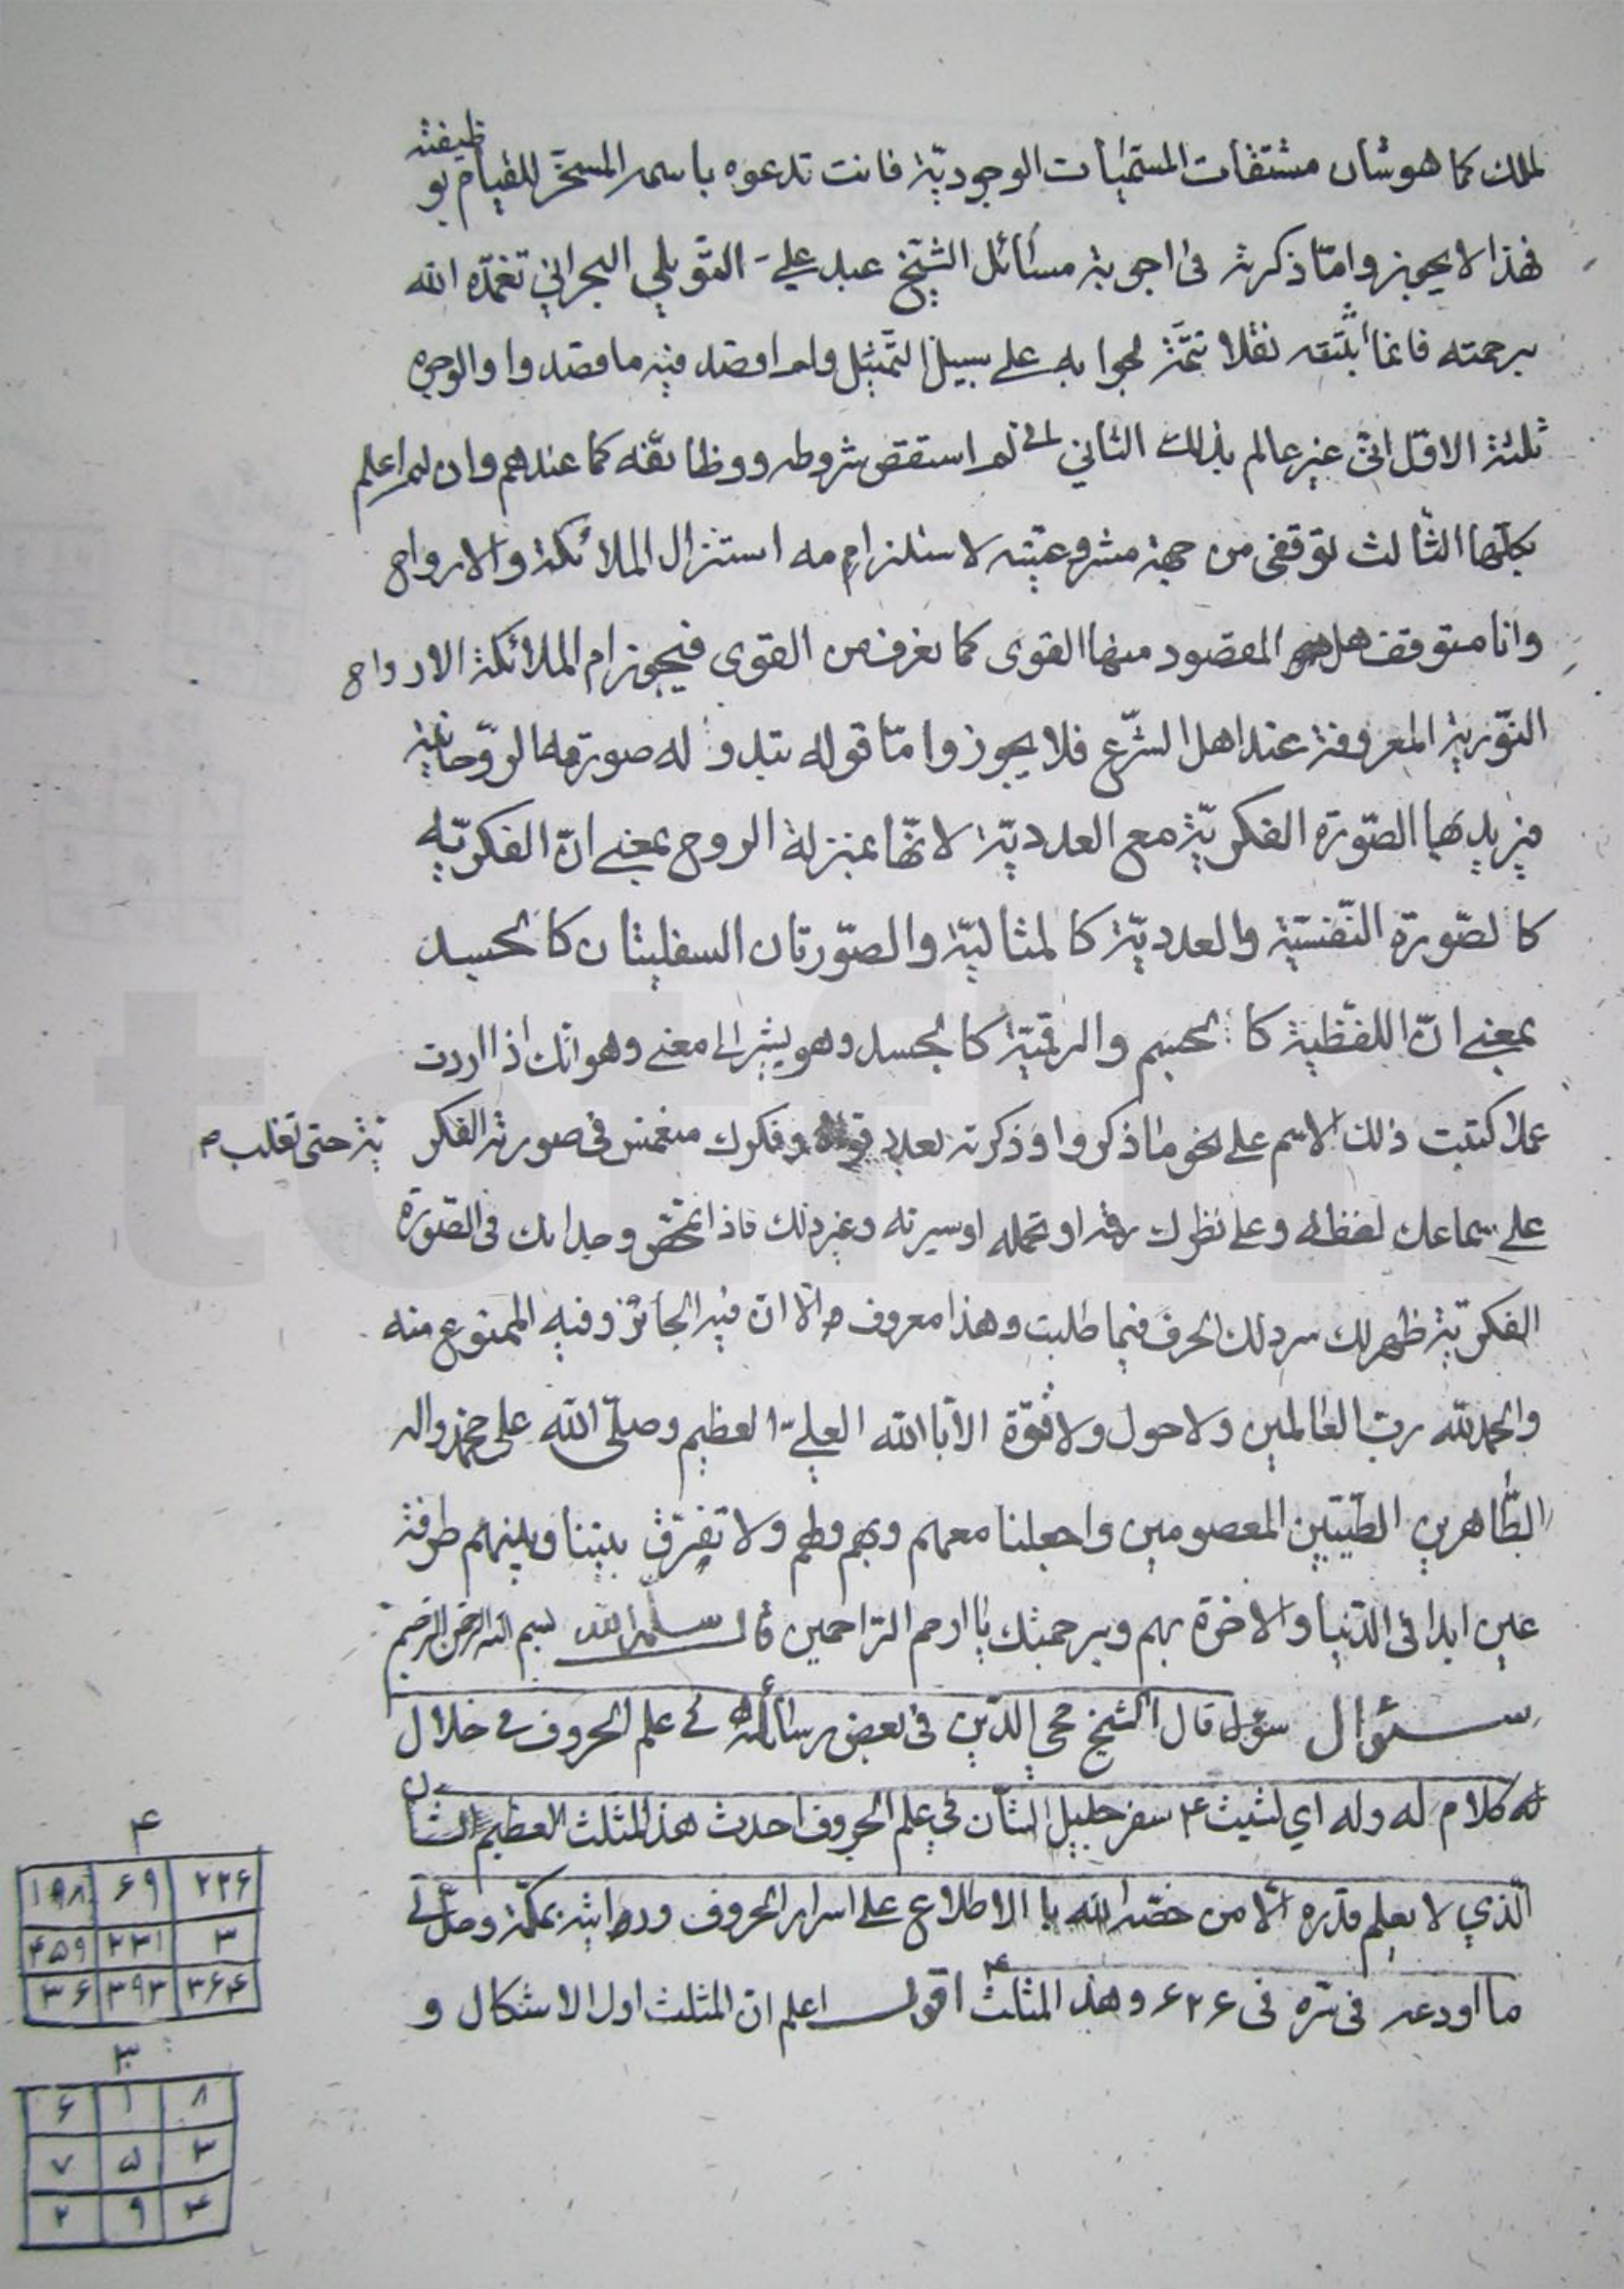 للملك كما هو شان مشتقات المسمّيات الوجوديّة فانت تدعوه باسمه المسخّر للقيام بو
ظيفته
فهذا لا يجوز وامّا ذكرته فى اجوبة مسائل الشيخ عبد على التوبلي البحراني تغمّده الله
برحمته فانما نقلا تتمّة لجوابه على سبيل التمثيل ولم اقصد فيه ما قصدوا والوجوه
ثلثة الاوّل انى غير عالم بذلك الثاني لم استقص شروطه ووظائفه كما عندهم وان لم اعلم
بكلّها الثالث توقفى من جهة مشروعيّته لاستلزامه استنزال الملائكة والارواح
وانا متوقف هل المقصود منها القوى كما نعرف من القوى فيجوز ام الملائكة الارواح
النّوريّة المعروفة عند اهل الشّرع فلا يجوز وامّا قوله تبدو له صورتها الروّحانية
فيريد بها الصّورة الفكريّة مع العدديّة لانّها بمنزلة الروح بمعنى انّ الفكريّه
كالصّورة النّفسيّة والعدديّة كالمثاليّة والصّورتان السفليتان كالجسد
بمعنى انّ اللفظية كالجسم والرقميّة كالجسد وهو يشير الى معنى وهو انّك اذا اردت
عملا كتبت ذلك الاسم على نحو ما ذكروا وذكرته بعدد قواه وفكرك منغمس فى صورته الفكر يّة حتى تغلب
على سماعك لفظه وعلى نظرك رقمه او تحمله او سيرته وغير ذلك فاذا تمحّض وجدانك فى الصّورة
الفكريّة ظهر لك سر ذلك الحرف فيما طلبت وهذا معروف الّا انّ فيه الجائز وفيه الممنوع منه
والحمد لله رب العالمين ولا حول ولا قوّة الا باالله العليّ العظيم وصلّى الله على محمّد واله
الطّاهرين الطّيّبين المعصومين واجعلنا معهم وبهم ولهم ولا تفرّق بيننا وبينهم طرفة
عين ابدا فى الدّنيا والاخرة بهم وبرحمتك يا ارحم الرّاحمين قال سلمه الله بسم الله الرحمن الرّحيم
سئوال سؤل قال الشيخ محي الدّين فى بعض رسائله في علم الحروف في خلال
كلام له وله اي لشيث ۴ سفر جليل الشأن في علم الحروف احدث هذا المثلث العظيم الشان
الّذي لا يعلم قدره الّا من خصّه الله باالاطلاع على اسرار الحروف ورد بمكّة وصلّ لي
ما اودعه فى سّره فى ۶۲۶ وهذا المثلث ۴ اقول اعلم انّ المثلث اول الاشكال و
۴
۲۲۶ ۶۹ ۱۹۸
۳ ۲۳۱ ۴۵۹
۳۶۴ ۳۹۳ ۳۶
۳
۸ ۱ ۶
۳ ۵ ۷
۴ ۹ ۲